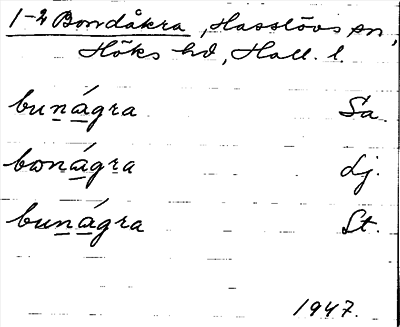 1-2 Bondåkra, Hasslövs sn,
Höks hd, Hall. l.
bunágra Sa.
bωnágra Lj.
bunágra St.
1947.